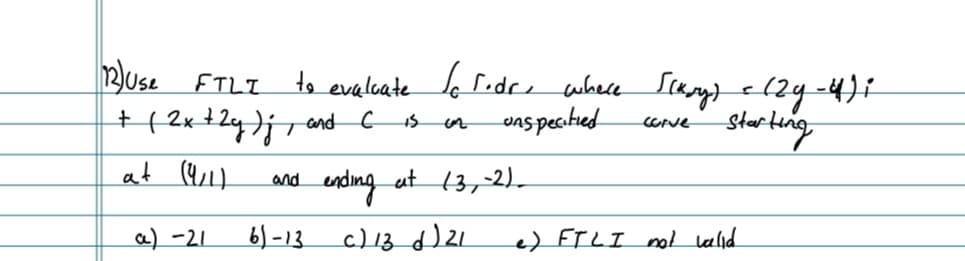 12) Use FTLI to evaluate ∫c F·dr, where F(x,y) = (2y-4)i
+ (2x+2y)j, and C is an unspecified curve starting
at (4,1) and ending at (3,-2).
a) -21 b) -13 c) 13 d) 21 e) FTLI not valid